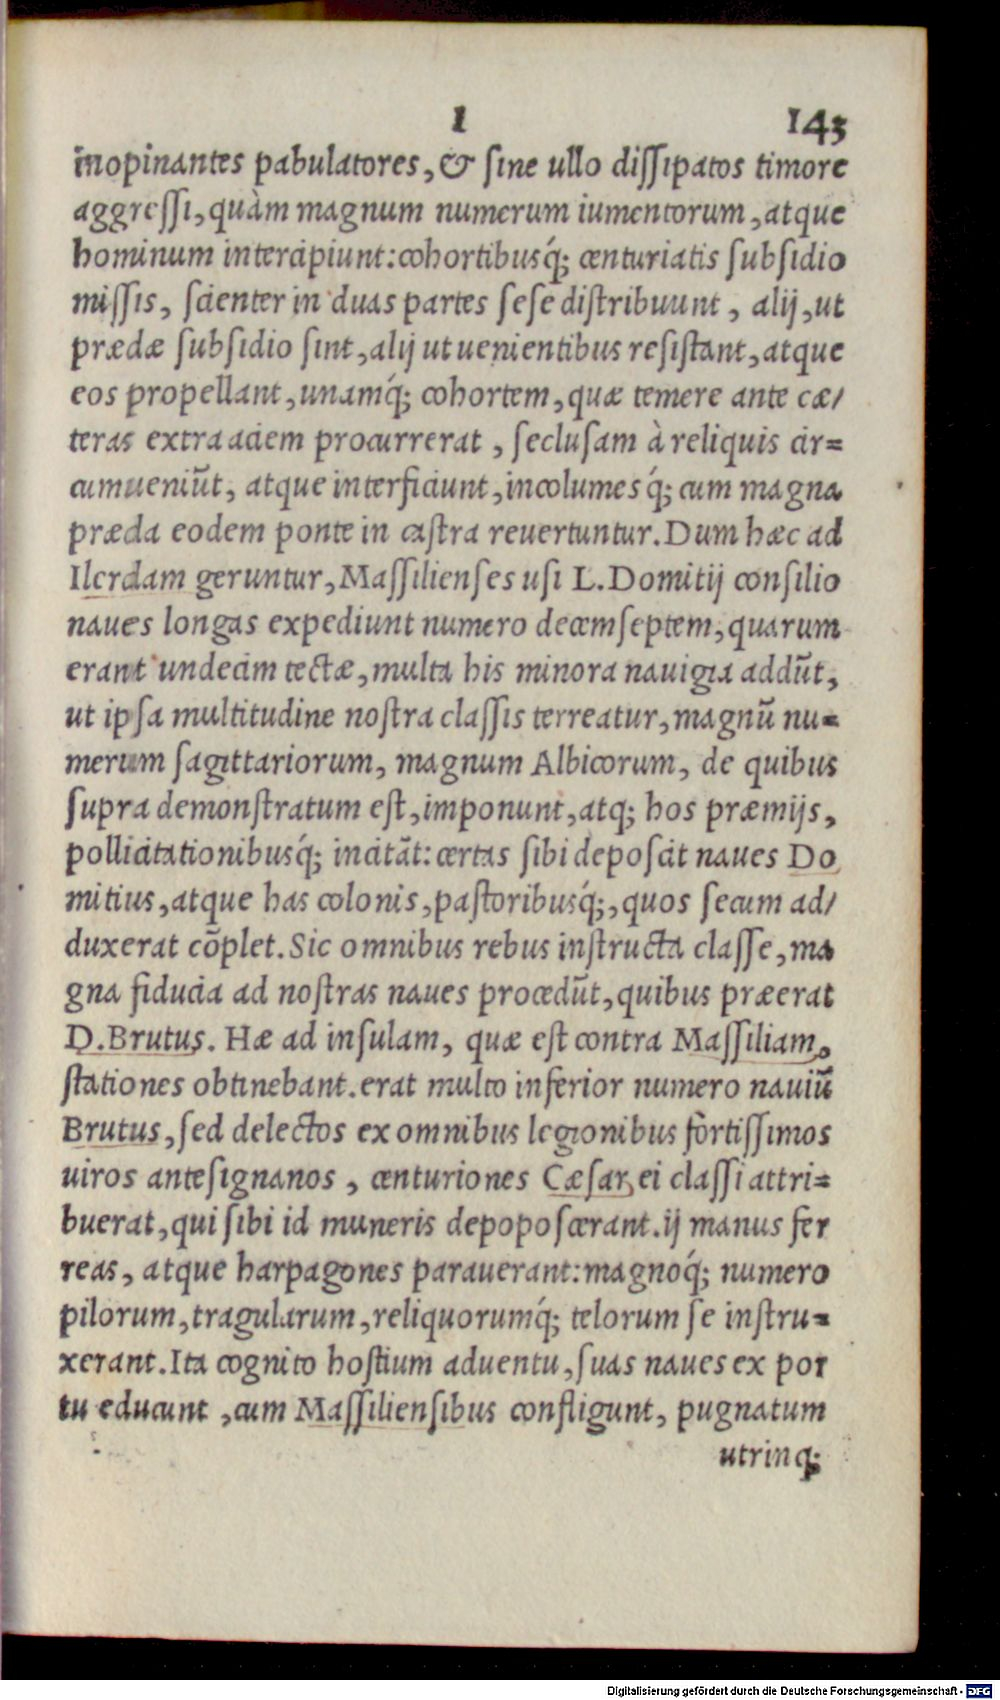 I 143
inopinantes pabulatores, & ſine ullo diſſipatos timore
aggreſſi, quàm magnum numerum iumentorum, atque
hominum intercipiunt: cohortibusq́; centuriatis ſubſidio
miſſis, ſcienter in duas partes ſeſe diſtribuunt, alij, ut
prædæ ſubſidio ſint, alij ut uenientibus reſiſtant, atque
eos propellant, unamq́; cohortem, quæ temere ante cæ/
teras extra aciem procurrerat, ſecluſam à reliquis cir=
cumueniũt, atque interficiunt, incolumes q́; cum magna
præda eodem ponte in caſtra reuertuntur. Dum hæc ad
Ilerdam geruntur, Maſſilienſes uſi L. Domitij conſilio
naues longas expediunt numero decem ſeptem, quarum
erant undecim tectæ, multa his minora nauigia addũt,
ut ipſa multitudine noſtra claſſis terreatur, magnũ nu=
merum ſagittariorum, magnum Albicorum, de quibus
ſupra demonſtratum eſt, imponunt, atq; hos præmijs,
pollicitationibusq́; incitãt: certas ſibi depoſcit naues Do
mitius, atque has colonis, paſtoribusq́;, quos ſecum ad/
duxerat cõplet. Sic omnibus rebus inſtructa claſſe, ma
gna fiducia ad noſtras naues procedũt, quibus præerat
D. Brutus. Hæ ad inſulam, quæ eſt contra Maſſiliam,
ſtationes obtinebant. erat multo inferior numero nauiũ
Brutus, ſed delectos ex omnibus legionibus fortiſſimos
uiros anteſignanos, centuriones Cæſar, ei claſſi attri=
buerat, qui ſibi id muneris depopoſcerant. ij manus fer
reas, atque harpagones parauerant: magnoq́; numero
pilorum, tragularum, reliquorumq́; telorum ſe inſtru=
xerant. Ita cognito hoſtium aduentu, ſuas naues ex por
tu educunt, cum Maſſilienſibus confligunt, pugnatum
utrinq;
Digitalisierung gefördert durch die Deutsche Forschungsgemeinschaft - DFG